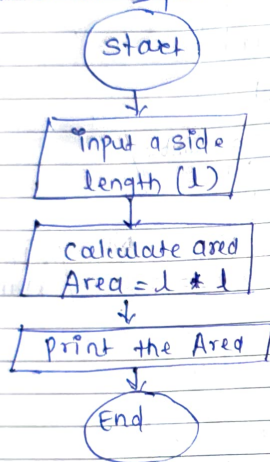 Start
Input a side
length (l)
Calculate area
Area = l * l
Print the Area
End